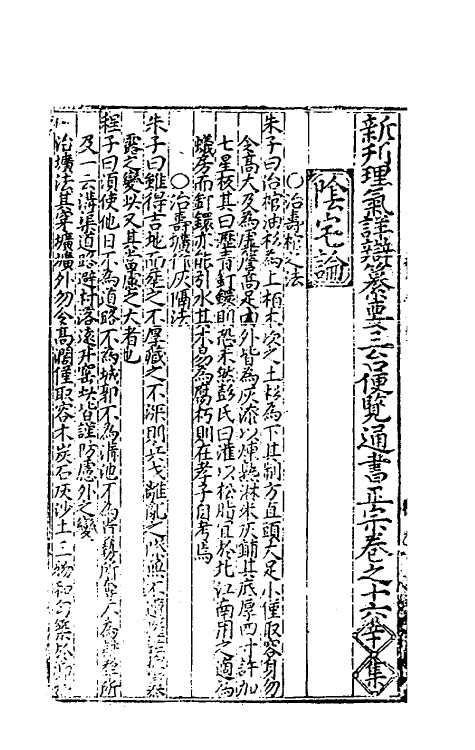 新刋理氣詳辯纂要三台便覽通書正宗卷之十六 集
陰宅論
○治壽棺之法
朱子曰治棺油杉為上柏木次之土杉為下其制方直頭大足小僅取容身勿
令高大及為虛簷高足內外皆為灰漆以煉熟淋米灰鋪其底厚四寸許加
七星板其曰瀝青釘鐶則恐未然彭氏曰灌以松脂宜於北江南用之適為
蟻房而釘鐶亦能引水其木易為腐朽則在孝子自考焉
○治壽壙作灰隔法
朱子曰雖得吉地而葬之不厚藏之不深則兵戈離亂之際無不遭
露之變此又其當慮之大者也
程子曰須使他日不為道路不為城郭不為溝池不為所奪不為耕犁所
及一云溝渠道路避村落遠井窑此皆謹防慮外之變
治壙法其穿壙壙外勿令高濶僅取容木炭石灰沙土三物和勻築於